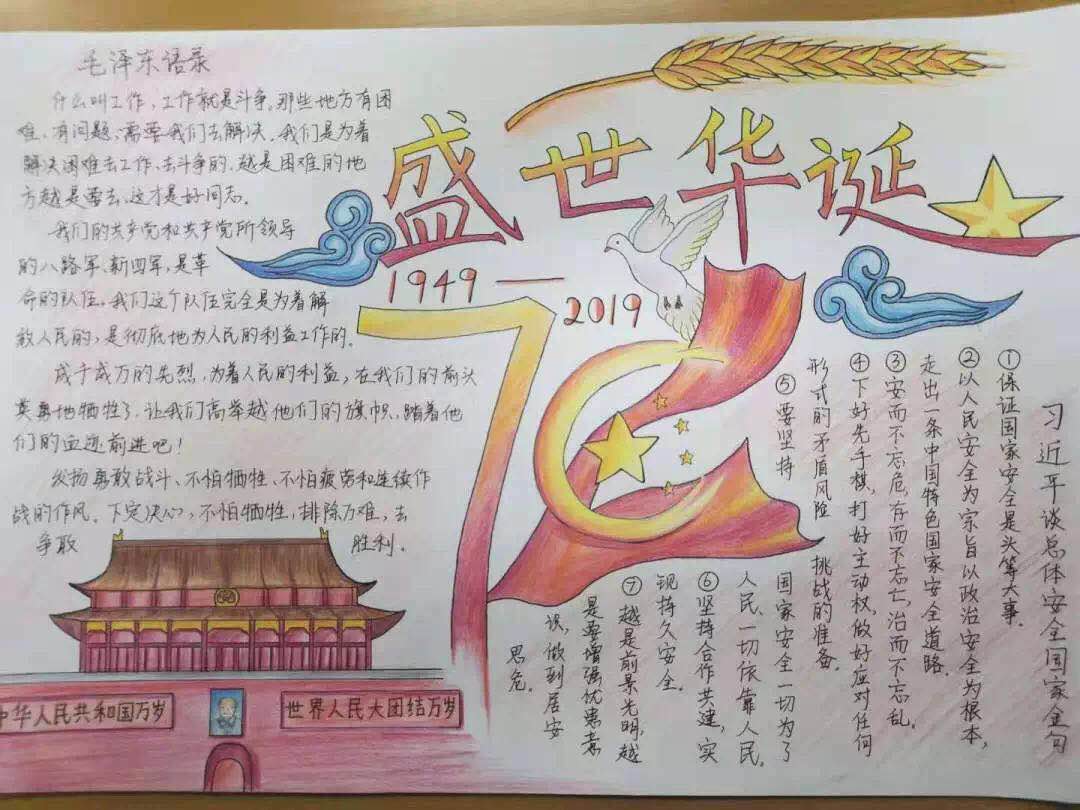 毛泽东语录
什么叫工作，工作就是斗争。那些地方有困
难、有问题、需要我们去解决。我们是为着
解决困难去工作、去斗争的。越是困难的地
方越是要去，这才是好同志。
我们的共产党和共产党所领导
的八路军、新四军，是革
命的队伍。我们这个队伍完全是为着解
放人民的，是彻底地为人民的利益工作的。
成千成万的先烈，为着人民的利益，在我们的前头
英勇地牺牲了，让我们高举越他们的旗帜，踏着他
们的血迹前进吧！
发扬勇敢战斗、不怕牺牲、不怕疲劳和连续作
战的作风。下定决心，不怕牺牲，排除万难，去
争取 胜利.
盛世华诞
1949—
2019
70
习近平谈总体安全国家金句
①保证国家安全是头等大事.
②以人民安全为宗旨以政治安全为根本,
走出一条中国特色国家安全道路.
③安而不忘危,存而不忘亡,治而不忘乱.
④下好先手棋,打好主动权,做好应对任何
形式的矛盾风险 挑战的准备.
⑤要坚持
国家安全一切为了
人民、一切依靠人民.
⑥坚持合作共建,实
现持久安全.
⑦越是前景光明,越
是要增强忧患意
识,做到居安
思危.
中华人民共和国万岁
世界人民大团结万岁